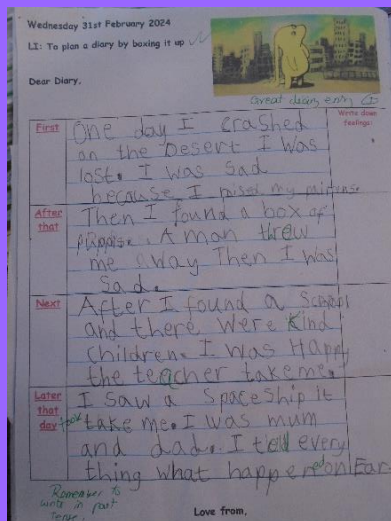 Wednesday 31st February 2024
LI: To plan a diary by boxing it up
Dear Diary,
Great diary entry
Write down feelings:
First
One day I crashed
on the Desert I was
lost. I was sad
because I missed my
After that
Then I found a box of
A man threw
me away Then I was
Sad.
Next
After I found a School
and there were kind
children. I was Happy
the teacher take me.
Later that day
I saw a Spaceship it
took
take me. I was mum
and dad. I tell every
thing what happened on Ear
Remember to
write in past
tense.
Love from,